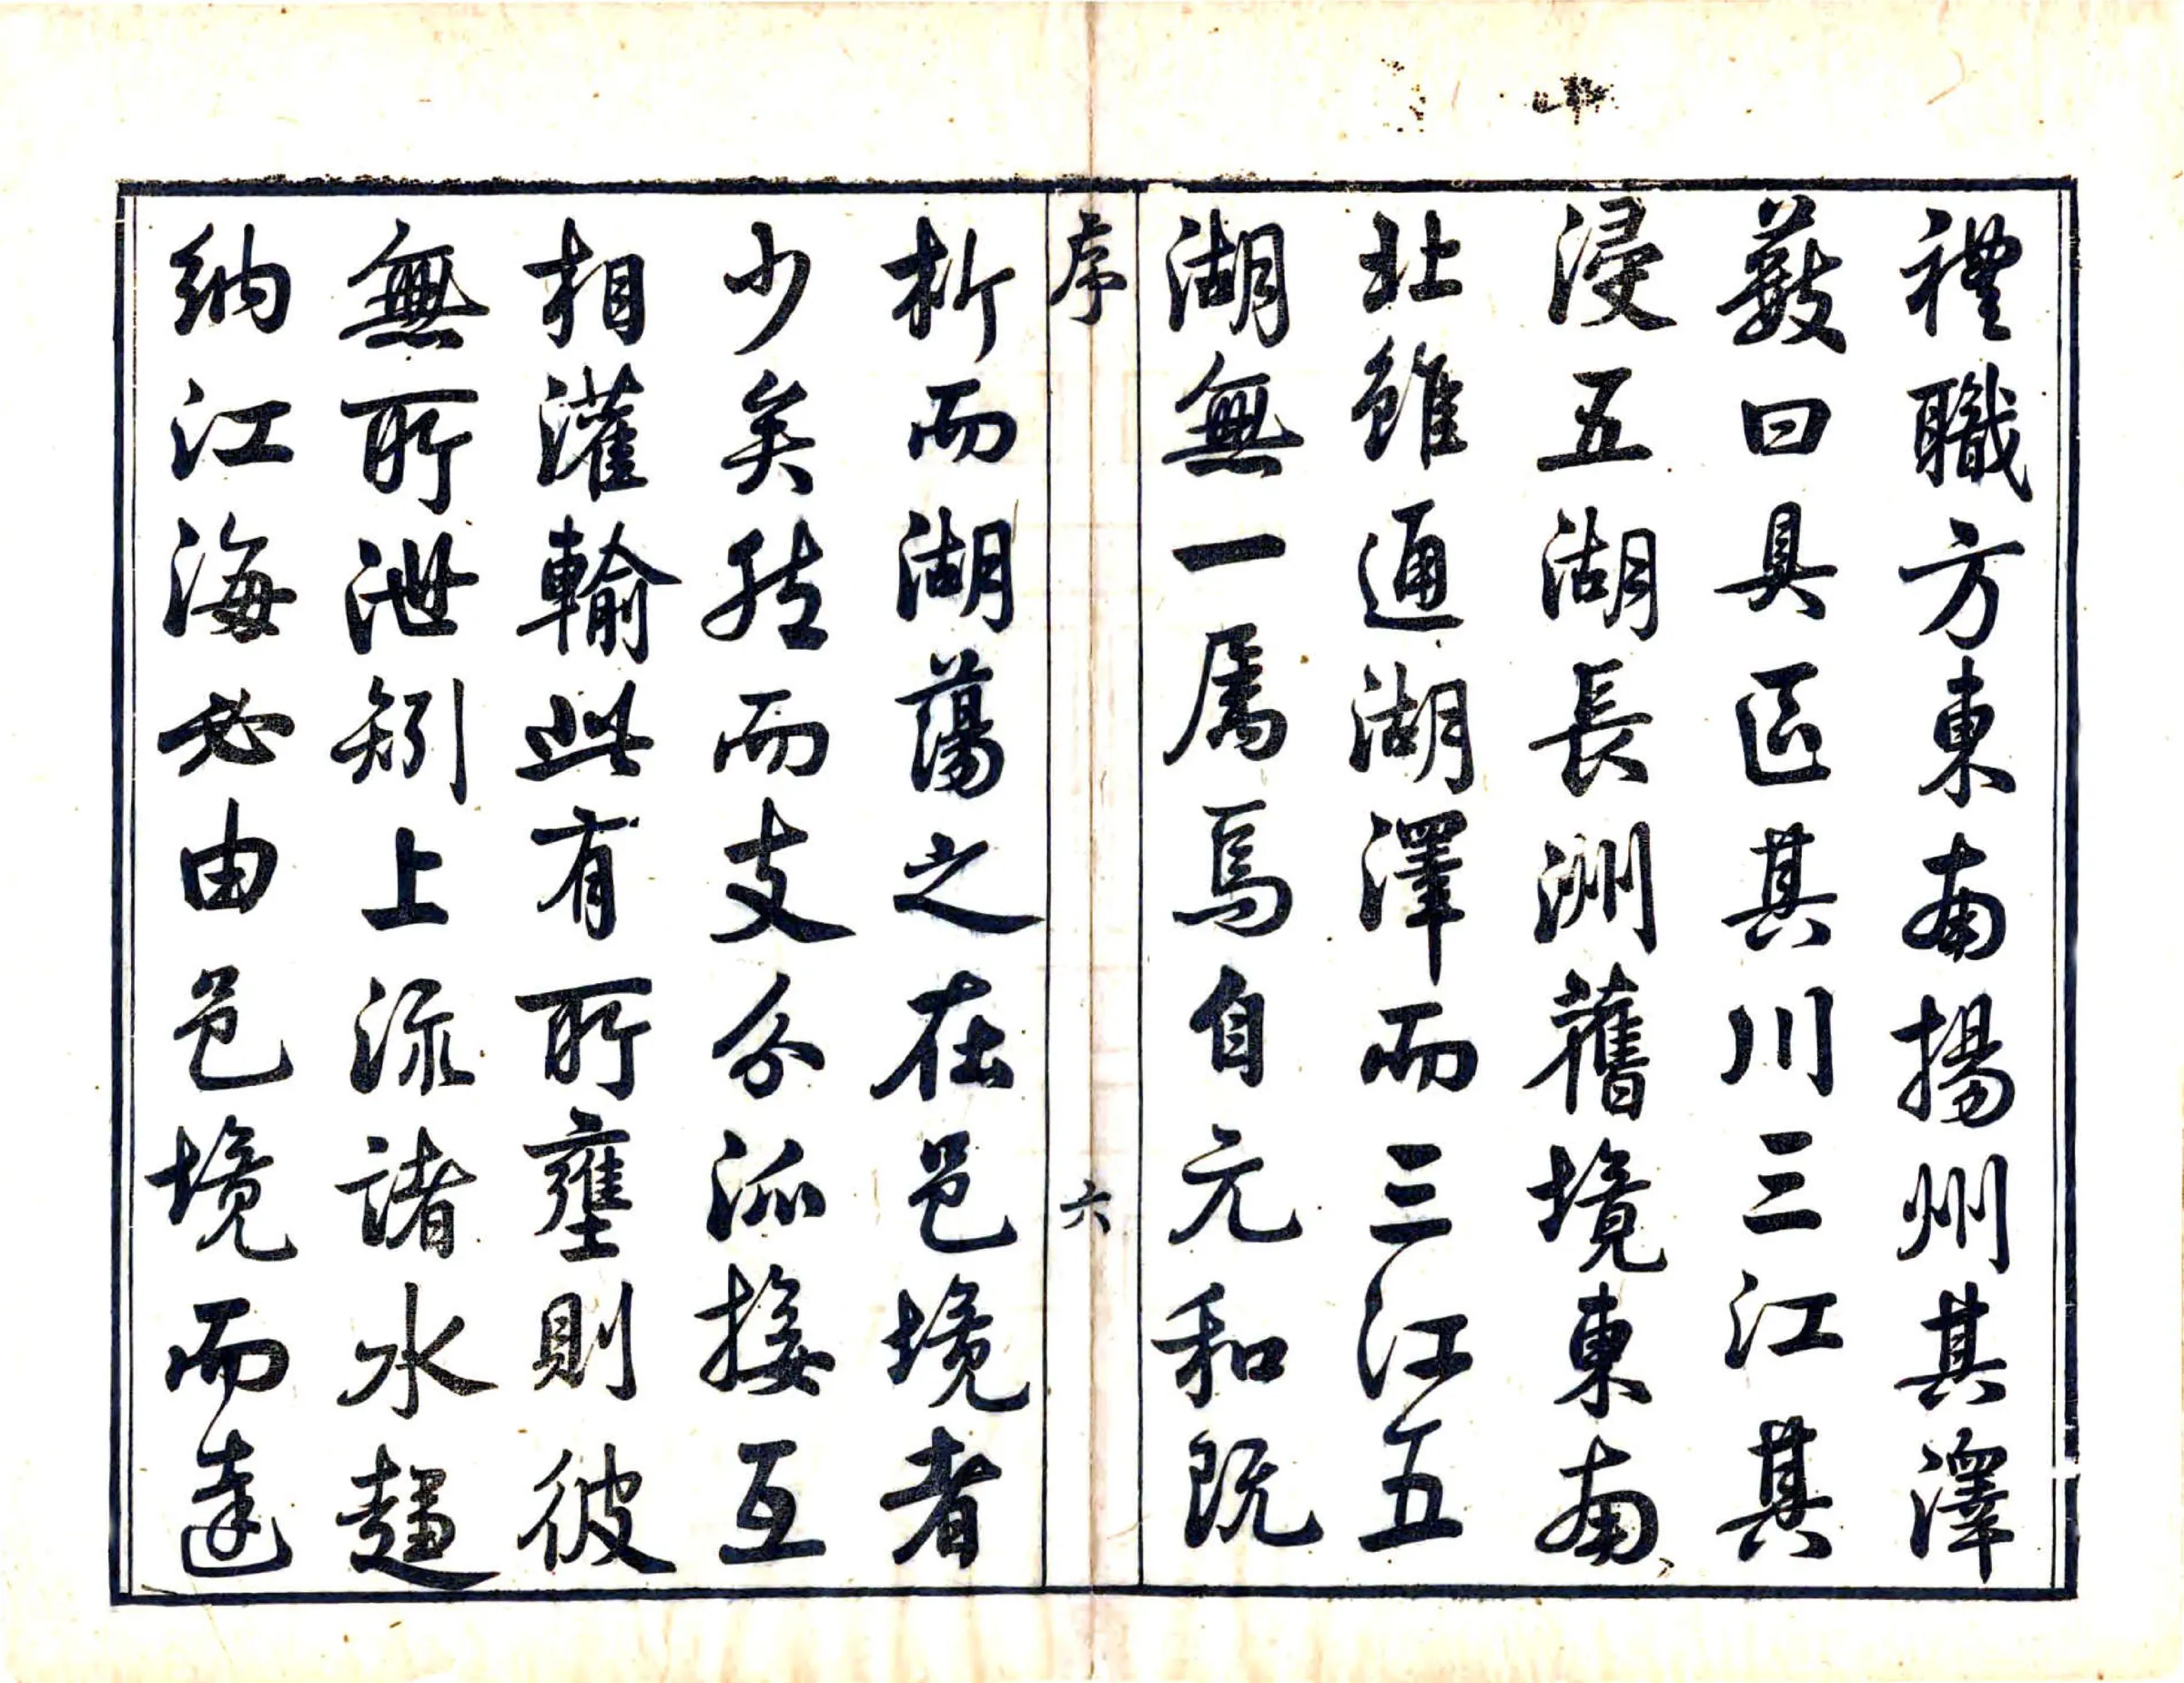 禮職方東南揚州其澤
藪曰具區其川三江其
浸五湖長洲舊境東南
北雖通湖澤而三江五
湖無一屬焉自元和既
序
六
析而湖蕩之在邑境者
少矣然而支分派接互
相灌輸此有所壅則彼
無所泄矧上流諸水趨
納江海必由邑境而達